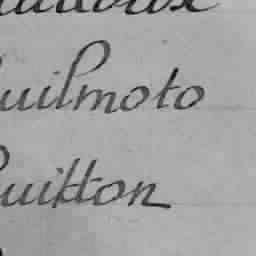 uilmoto
uitton